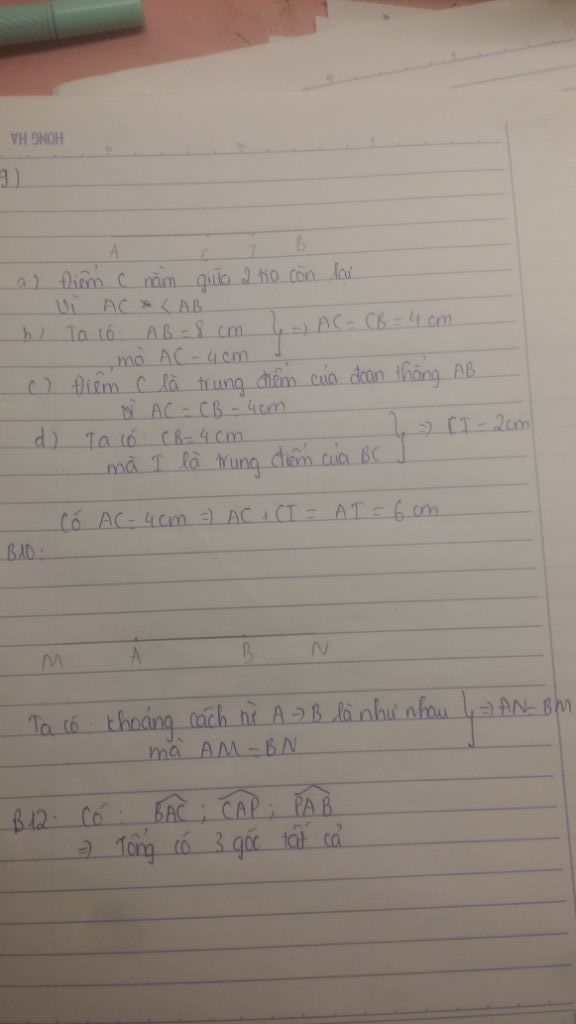 HONG HA
9)
A C I B
a) Điểm C nằm giữa 2 tia còn lại
Vì AC < AB
b) Ta có: AB = 8 cm
mà AC = 4cm } => AC = CB = 4 cm
c) Điểm C là trung điểm của đoạn thẳng AB
vì AC = CB = 4cm
d) Ta có: CB = 4cm
mà I là trung điểm của BC } => CI = 2cm
Có AC = 4cm => AC + CI = AI = 6 cm
B10:
M A B N
Ta có: khoảng cách từ A -> B là như nhau
mà AM = BN } => AN = BM
B12: Có: BAC ; CAP ; PAB
=> Tổng có 3 góc tất cả